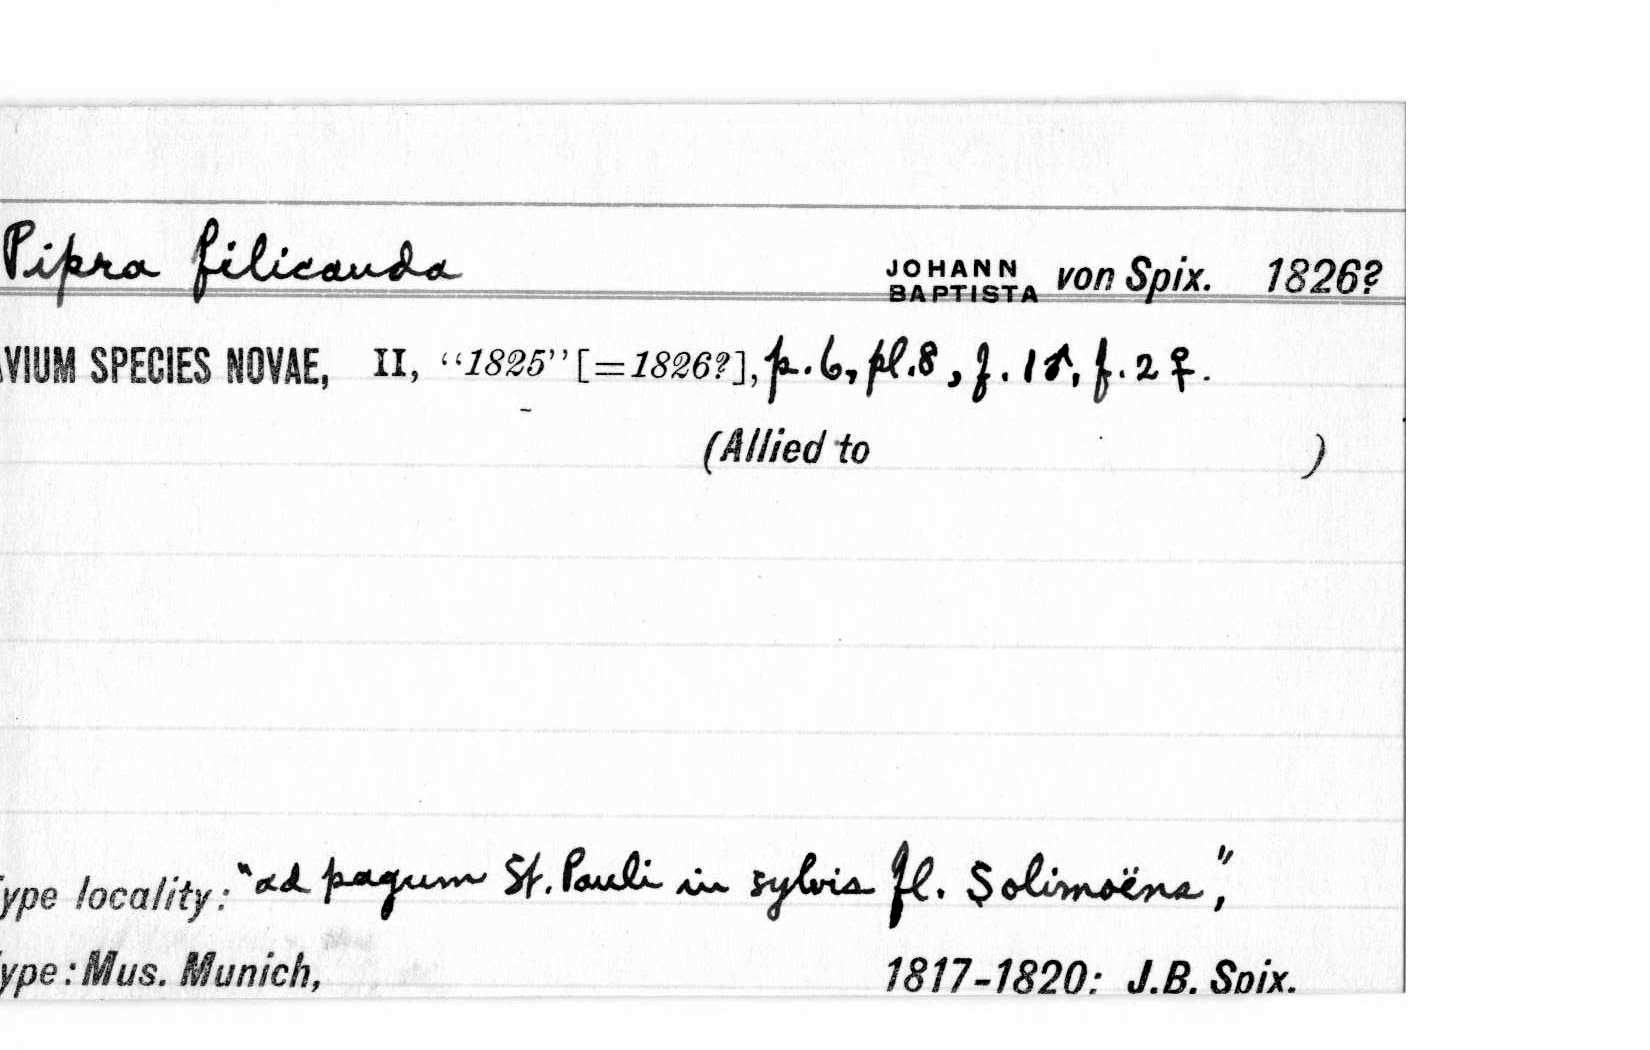 Pipra filicauda JOHANN BAPTISTA von Spix. 1826?
AVIUM SPECIES NOVAE, II, “1825” [=1826?], p. 6, pl. 8, f. 1 ♂, f. 2 ♀.
(Allied to )
ype locality: "ad pagum St. Pauli in sylvis fl. Solimoëns",
ype: Mus. Munich, 1817-1820: J.B. Spix.